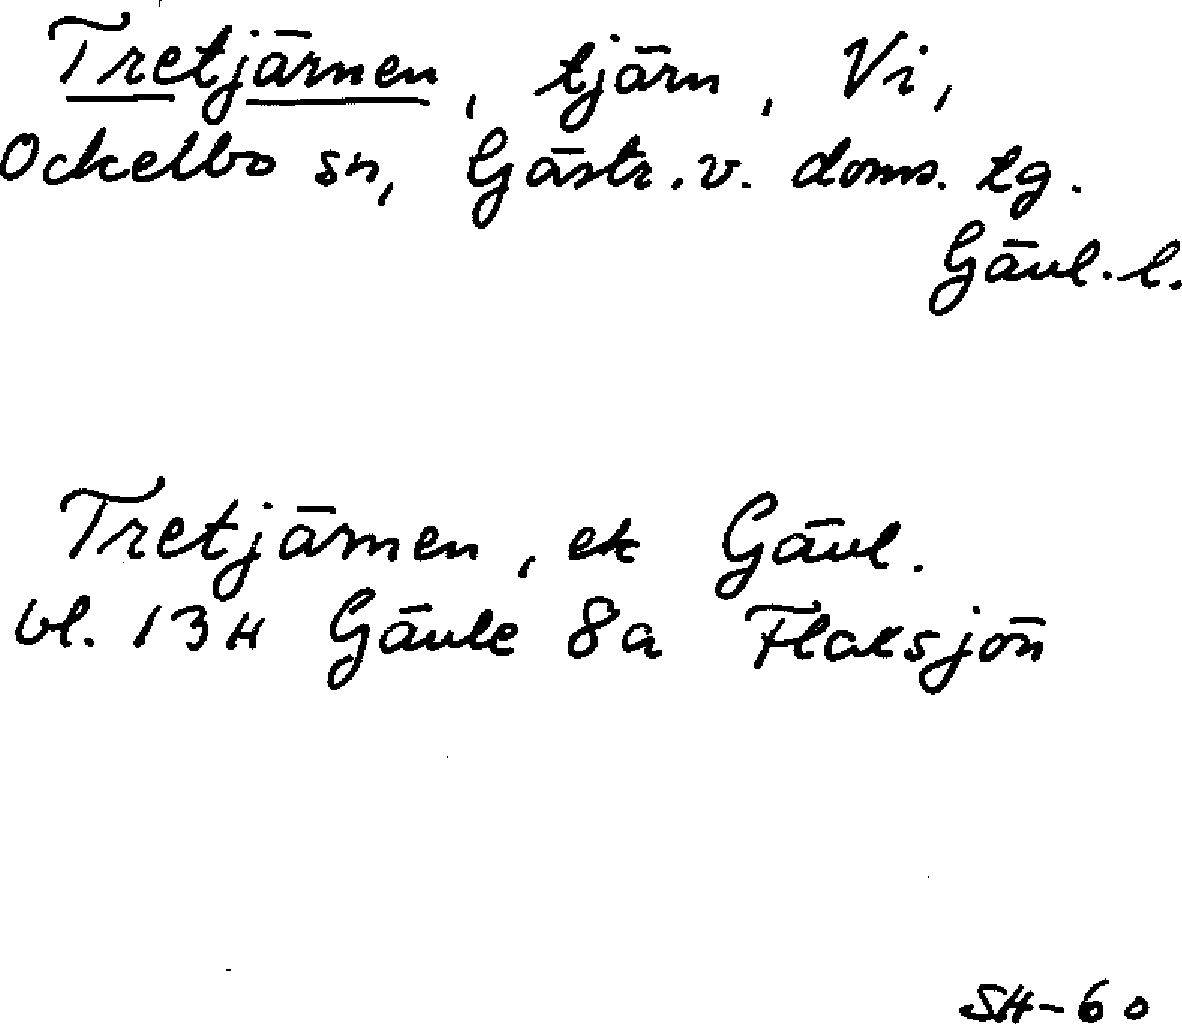 Tretjärnen, tjärn, Vi,
Ockelbo sn, Gästr. v. doms. tg.
Gävl. l.
Tretjärnen, ek Gävl.
bl. 13H Gävle 8a Flaksjön
SH-60